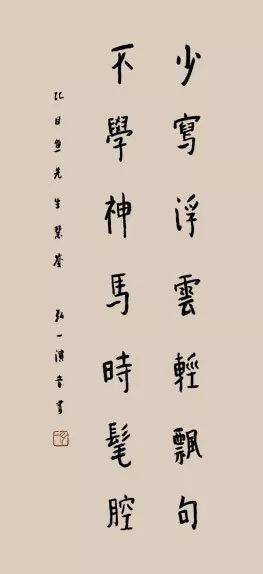 少寫浮雲輕飄句
不學神馬時髦腔
比目魚先生慧鉴 弘一演音書